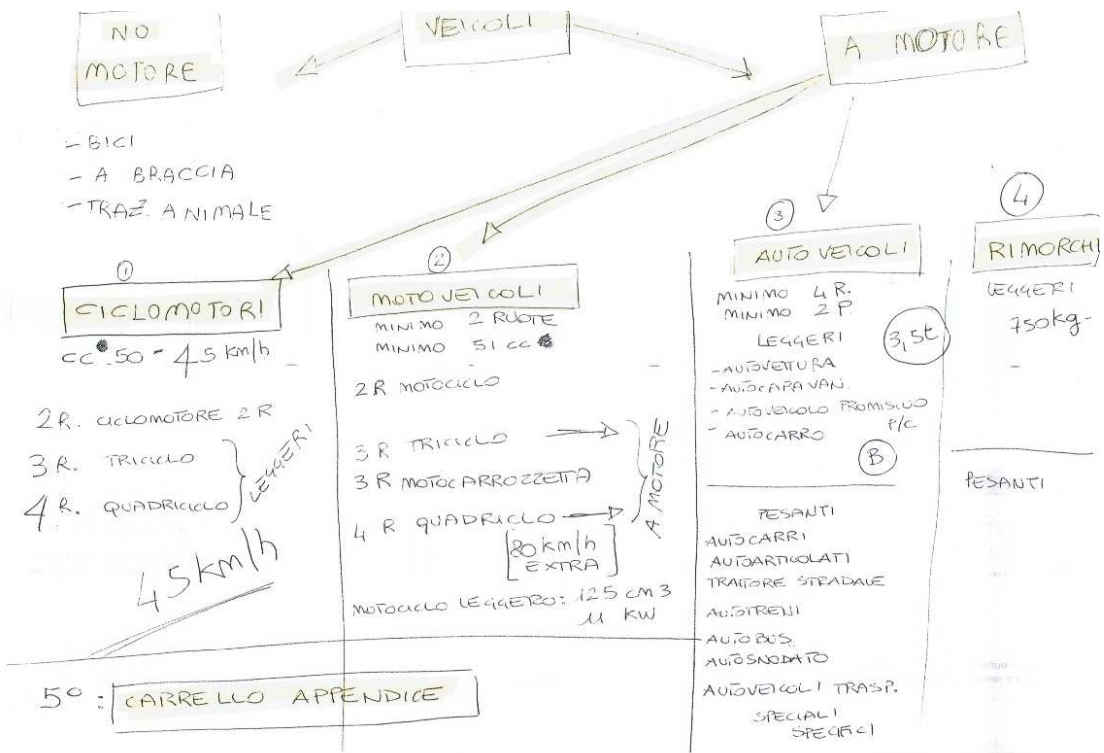 VEICOLI
NO
MOTORE
A MOTORE
- BICI
- A BRACCIA
- TRAZ. ANIMALE
1
CICLOMOTORI
CC 50 - 45 km/h
2R. CICLOMOTORE 2R
3R. TRICICLO
4R. QUADRICICLO
LEGGERI
45 km/h
2
MOTOVEICOLI
MINIMO 2 RUOTE
MINIMO 51 CC
2R MOTOCICLO
3R TRICICLO
3R MOTOCARROZZETTA
4R QUADRICLO
A MOTORE
[80 km/h
EXTRA]
MOTOCICLO LEGGERO: 125 cm3
11 KW
3
AUTOVEICOLI
MINIMO 4 R.
MINIMO 2 P.
LEGGERI
3,5t
- AUTOVETTURA
- AUTOCARAVAN.
- AUTOVEICOLO PROMISCUO
P/C
- AUTOCARRO
B
PESANTI
AUTOCARRI
AUTOARTICOLATI
TRATTORE STRADALE
AUTOTRENI
AUTOBUS
AUTOSNODATO
AUTOVEICOLI TRASP.
SPECIALI
SPECIFICI
4
RIMORCHI
LEGGERI
750kg-
PESANTI
5° : CARRELLO APPENDICE